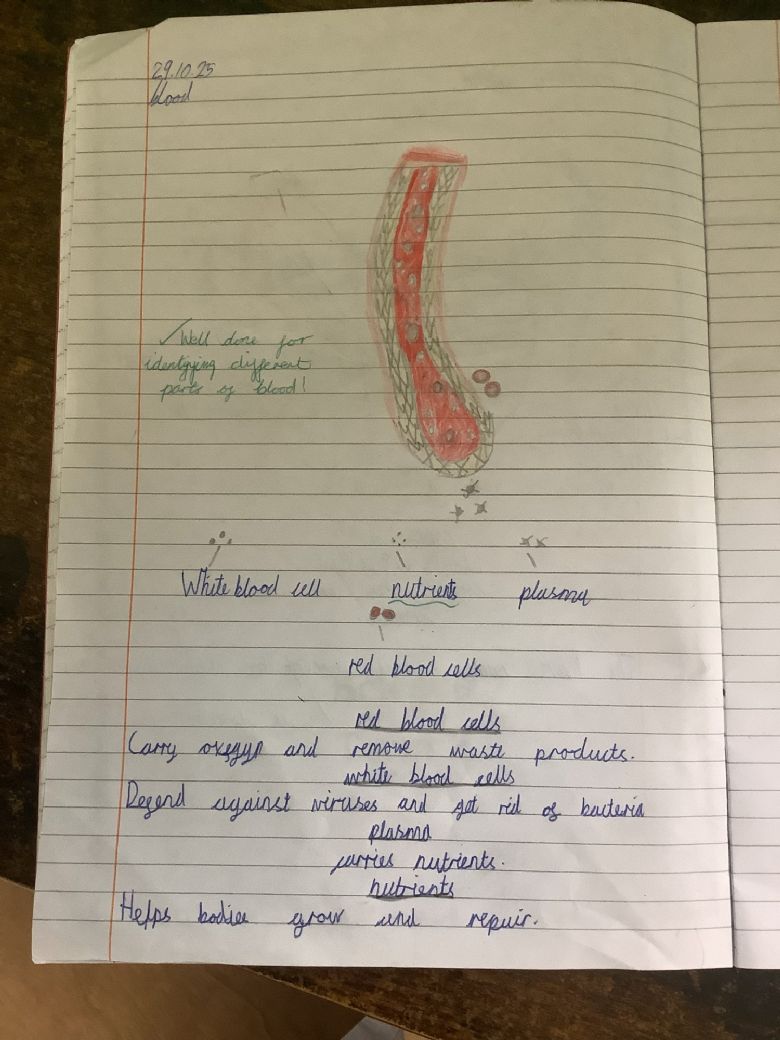 29.10.25
blood
✓ Well done for
identifying different
parts of blood!
White blood cell nutrients plasma
red blood cells
red blood cells
Carry oxegyn and remove waste products.
white blood cells
Defend against viruses and get rid of bacteria
plasma
carries nutrients.
nutrients
Helps bodies grow and repair.